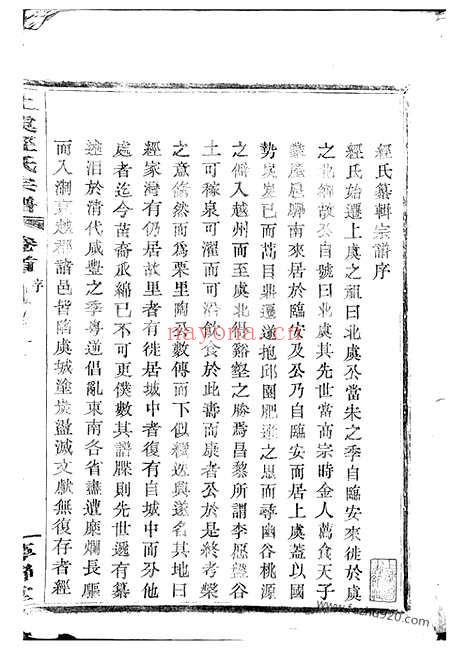 經氏纂輯宗譜序
經氏始遷上虞之祖曰北虞公當朱之季自臨安來徙於虞
之北鄉故公自號曰北虞其先世當高宗時金人薦食天子
蒙塵扈驆南來居於臨安及公乃自臨安而居上虞蓋以國
勢岌岌已而蒿目鼎遷遂抱邱園肥遯之思而尋幽谷桃源
之偕入越州而至虞北谿壑之勝為昌黎所謂李愿盤谷
土可稼泉可濯而可沿飲食於此壽而康者公於是終考槃
之意翛然而為栗里陶公數傳而下似續迭興遂名其地曰
經家灣有仍居故里者有徙居城中者復有自城中而分他
處者迄今苗裔承綿已不可更僕數其譜牒則先世遞有纂
述洎於清代咸豐之季粵逆倡亂東南各省盡遭糜爛長驅
而入浙東越郡諸邑皆陷虞城塗炭蕩滅文獻無復存者經
上虞經氏宗譜 卷首 序
nayona.cn
www.fazhu920.com